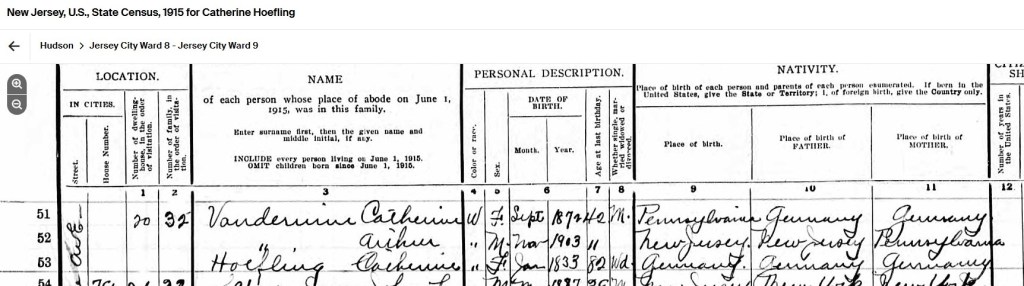 New Jersey, U.S., State Census, 1915 for Catherine Hoefling
Hudson > Jersey City Ward 8 - Jersey City Ward 9
LOCATION. NAME PERSONAL DESCRIPTION. NATIVITY.
IN CITIES.
Street.
House Number.
Number of dwelling-house, in the order of visitation.
Number of family, in the order of visitation.
of each person whose place of abode on June 1, 1915, was in this family.
Enter surname first, then the given name and middle initial, if any.
INCLUDE every person living on June 1, 1915.
OMIT children born since June 1, 1915.
Color or race.
Sex.
DATE OF BIRTH.
Month. Year.
Age at last birthday.
Whether single, married, widowed or divorced.
Place of birth of each person and parents of each person enumerated. If born in the United States, give the State or Territory; if of foreign birth, give the Country only.
Place of birth.
Place of birth of FATHER.
Place of birth of MOTHER.
Number of years in the United States.
1 2 3 4 5 6 7 8 9 10 11 12
51 20 32 Catherine W F. Sept 1872 42 M. Pennsylvania Germany Germany
52 " Arthur " M. Nov 1903 11 New Jersey. New Jersey Pennsylvania
53 Hoefling Catherine " F. Jan 1833 82 Wd. Germany. Germany Germany
54